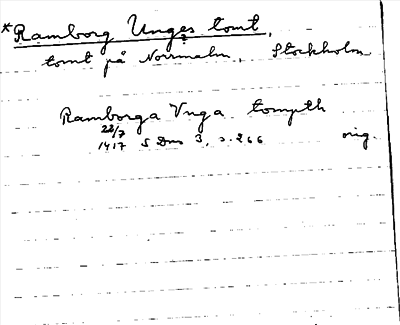 *Ramborg Unges tomt,
tomt på Norrmalm, Stockholm
Ramborga Vnga tompth
22/7
1417 S Dns 3, s. 266 orig.